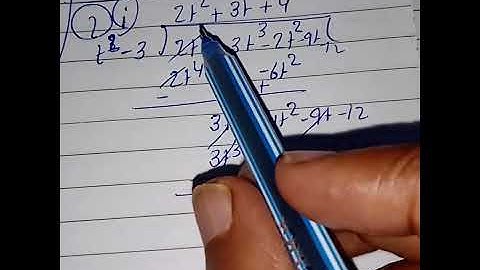 2 i 2t² + 3t + 4
t² - 3 ) 2t 3t³ - 2t² - 9t - 12
2t⁴ - 6t²
3 4t² - 9t - 12
3t³